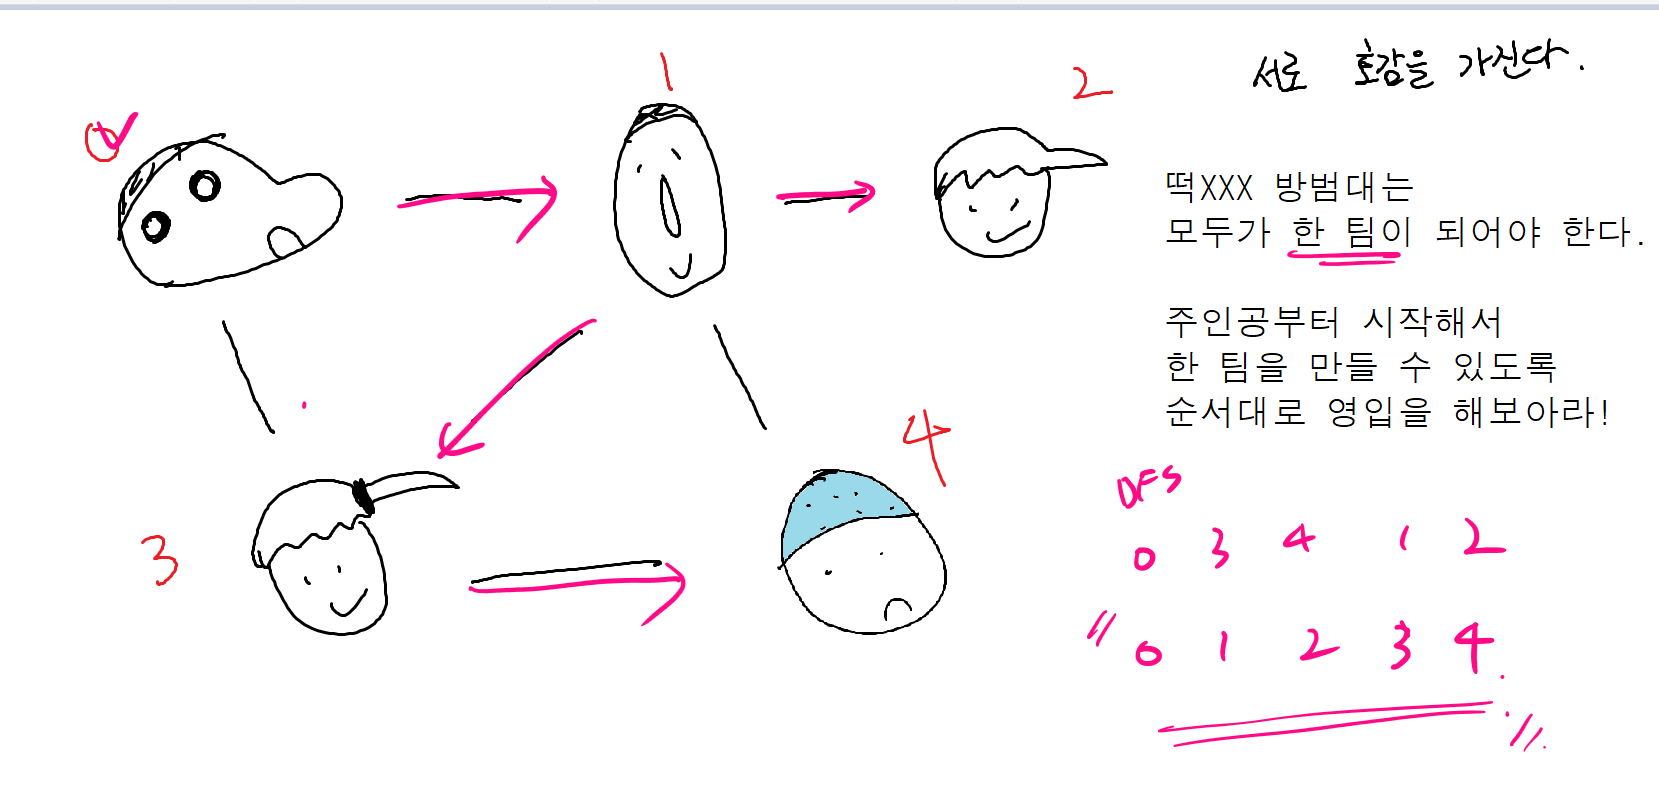 서로 호감을 가진다.
0
1
2
떡XXX 방범대는
모두가 한 팀이 되어야 한다.
주인공부터 시작해서
한 팀을 만들 수 있도록
순서대로 영입을 해보아라!
3
4
DFS
0 3 4 1 2
0 1 2 3 4.